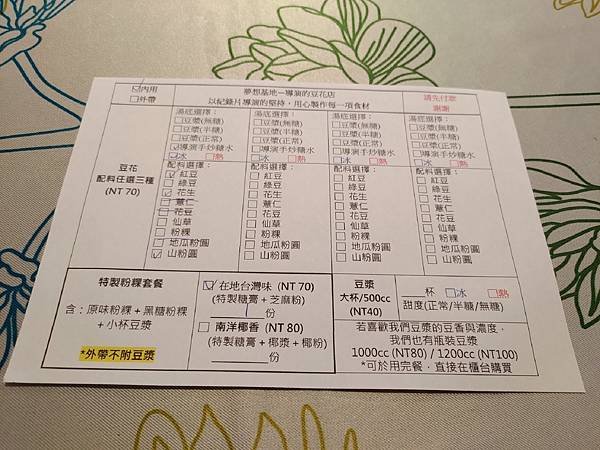 ☑內用
☐外帶
夢想基地－導演的豆花店
以紀錄片導演的堅持，用心製作每一項食材
請先付款
謝謝
豆花
配料任選三種
(NT 70)
湯底選擇：
☐豆漿(無糖)
☐豆漿(半糖)
☐豆漿(正常)
☑導演手炒糖水
☑冰 ☐熱
配料選擇：
☑ 紅豆
☐ 綠豆
☑ 花生
☐ 薏仁
☐ 花豆
☐ 仙草
☐ 粉粿
☐ 地瓜粉圓
☑ 山粉圓
湯底選擇：
☐豆漿(無糖)
☐豆漿(半糖)
☐豆漿(正常)
☐導演手炒糖水
☐冰 ☐熱
配料選擇：
☐ 紅豆
☐ 綠豆
☐ 花生
☐ 薏仁
☐ 花豆
☐ 仙草
☐ 粉粿
☐ 地瓜粉圓
☐ 山粉圓
湯底選擇：
☐豆漿(無糖)
☐豆漿(半糖)
☐豆漿(正常)
☐導演手炒糖水
☐冰 ☐熱
配料選擇：
☐ 紅豆
☐ 綠豆
☐ 花生
☐ 薏仁
☐ 花豆
☐ 仙草
☐ 粉粿
☐ 地瓜粉圓
☐ 山粉圓
湯底選擇：
☐豆漿(無糖)
☐豆漿(半糖)
☐豆漿(正常)
☐導演手炒糖水
☐冰 ☐熱
配料選擇：
☐ 紅豆
☐ 綠豆
☐ 花生
☐ 薏仁
☐ 花豆
☐ 仙草
☐ 粉粿
☐ 地瓜粉圓
☐ 山粉圓
特製粉粿套餐
含：原味粉粿＋黑糖粉粿
＋小杯豆漿
*外帶不附豆漿
☑ 在地台灣味 (NT 70)
(特製糖膏＋芝麻粉)
1 份
☐ 南洋椰香 (NT 80)
(特製糖膏＋椰漿＋椰粉)
份
豆漿
大杯/500cc
(NT40)
杯 ☐冰 ☐熱
甜度(正常/半糖/無糖)
若喜歡我們豆漿的豆香與濃度，
我們也有瓶裝豆漿
1000cc (NT80) / 1200cc (NT100)
*可於用完餐，直接在櫃台購買